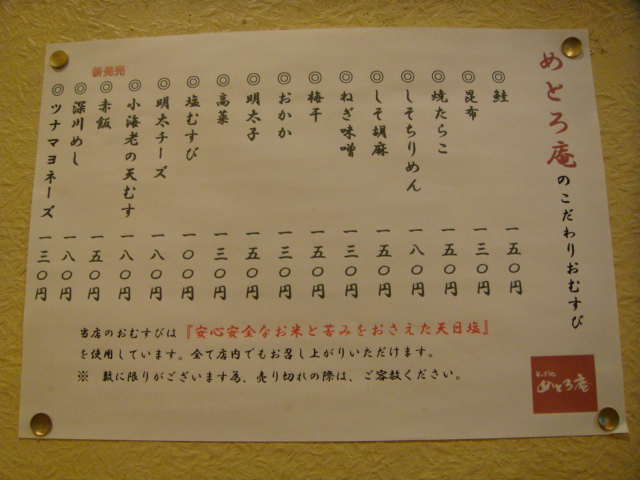 めとろ庵のこだわりおむすび
◎鮭 一五〇円
◎昆布 一三〇円
◎焼たらこ 一五〇円
◎しそちりめん 一八〇円
◎しそ胡麻 一五〇円
◎ねぎ味噌 一三〇円
◎梅干 一五〇円
◎おかか 一三〇円
◎明太子 一五〇円
◎高菜 一三〇円
◎塩むすび 一〇〇円
◎明太チーズ 一八〇円
◎小海老の天むす 一八〇円
新発売
◎赤飯 一五〇円
◎深川めし 一八〇円
◎ツナマヨネーズ 一三〇円
当店のおむすびは『安心安全なお米と苦みをおさえた天日塩』
を使用しています。全て店内でもお召し上がりいただけます。
※ 数に限りがございます為、売り切れの際は、ご容赦ください。
めとろ庵